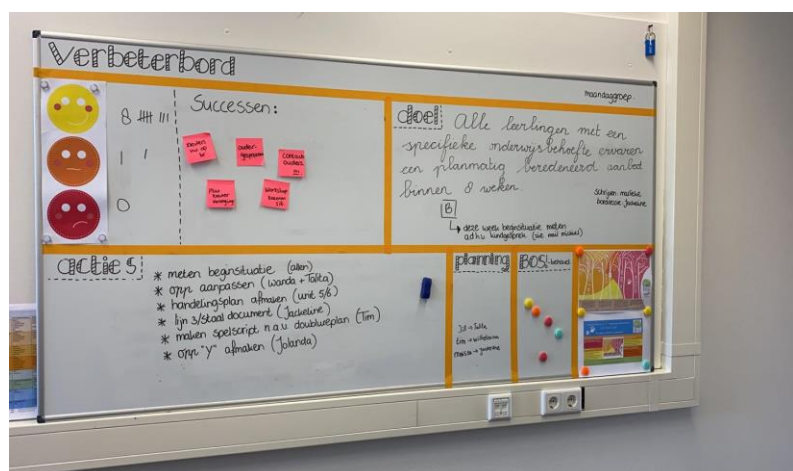 Verbeterbord
maandaggroep.
8 |||| |||
| |
0
Successen:
ouder-
gesprekken
contact
ouders
Workshop
doel
Alle leerlingen met een
specifieke onderwijsbehoefte ervaren
een planmatig beredeneerd aanbod
binnen 8 weken.
B
deze week beginsituatie meten
a.d.h.v. kindgesprek (zie mail michiel)
acties
* meten beginsituatie (allen)
* opp aanpassen (Wanda + Talita)
* handelingsplan afmaken (unit 5/6)
* lijn 3/Staal document (Jackeline)
* maken spelscript n.a.v. doublureplan (Tim)
* opp "Y" afmaken (Jolanda)
planning
BOS!